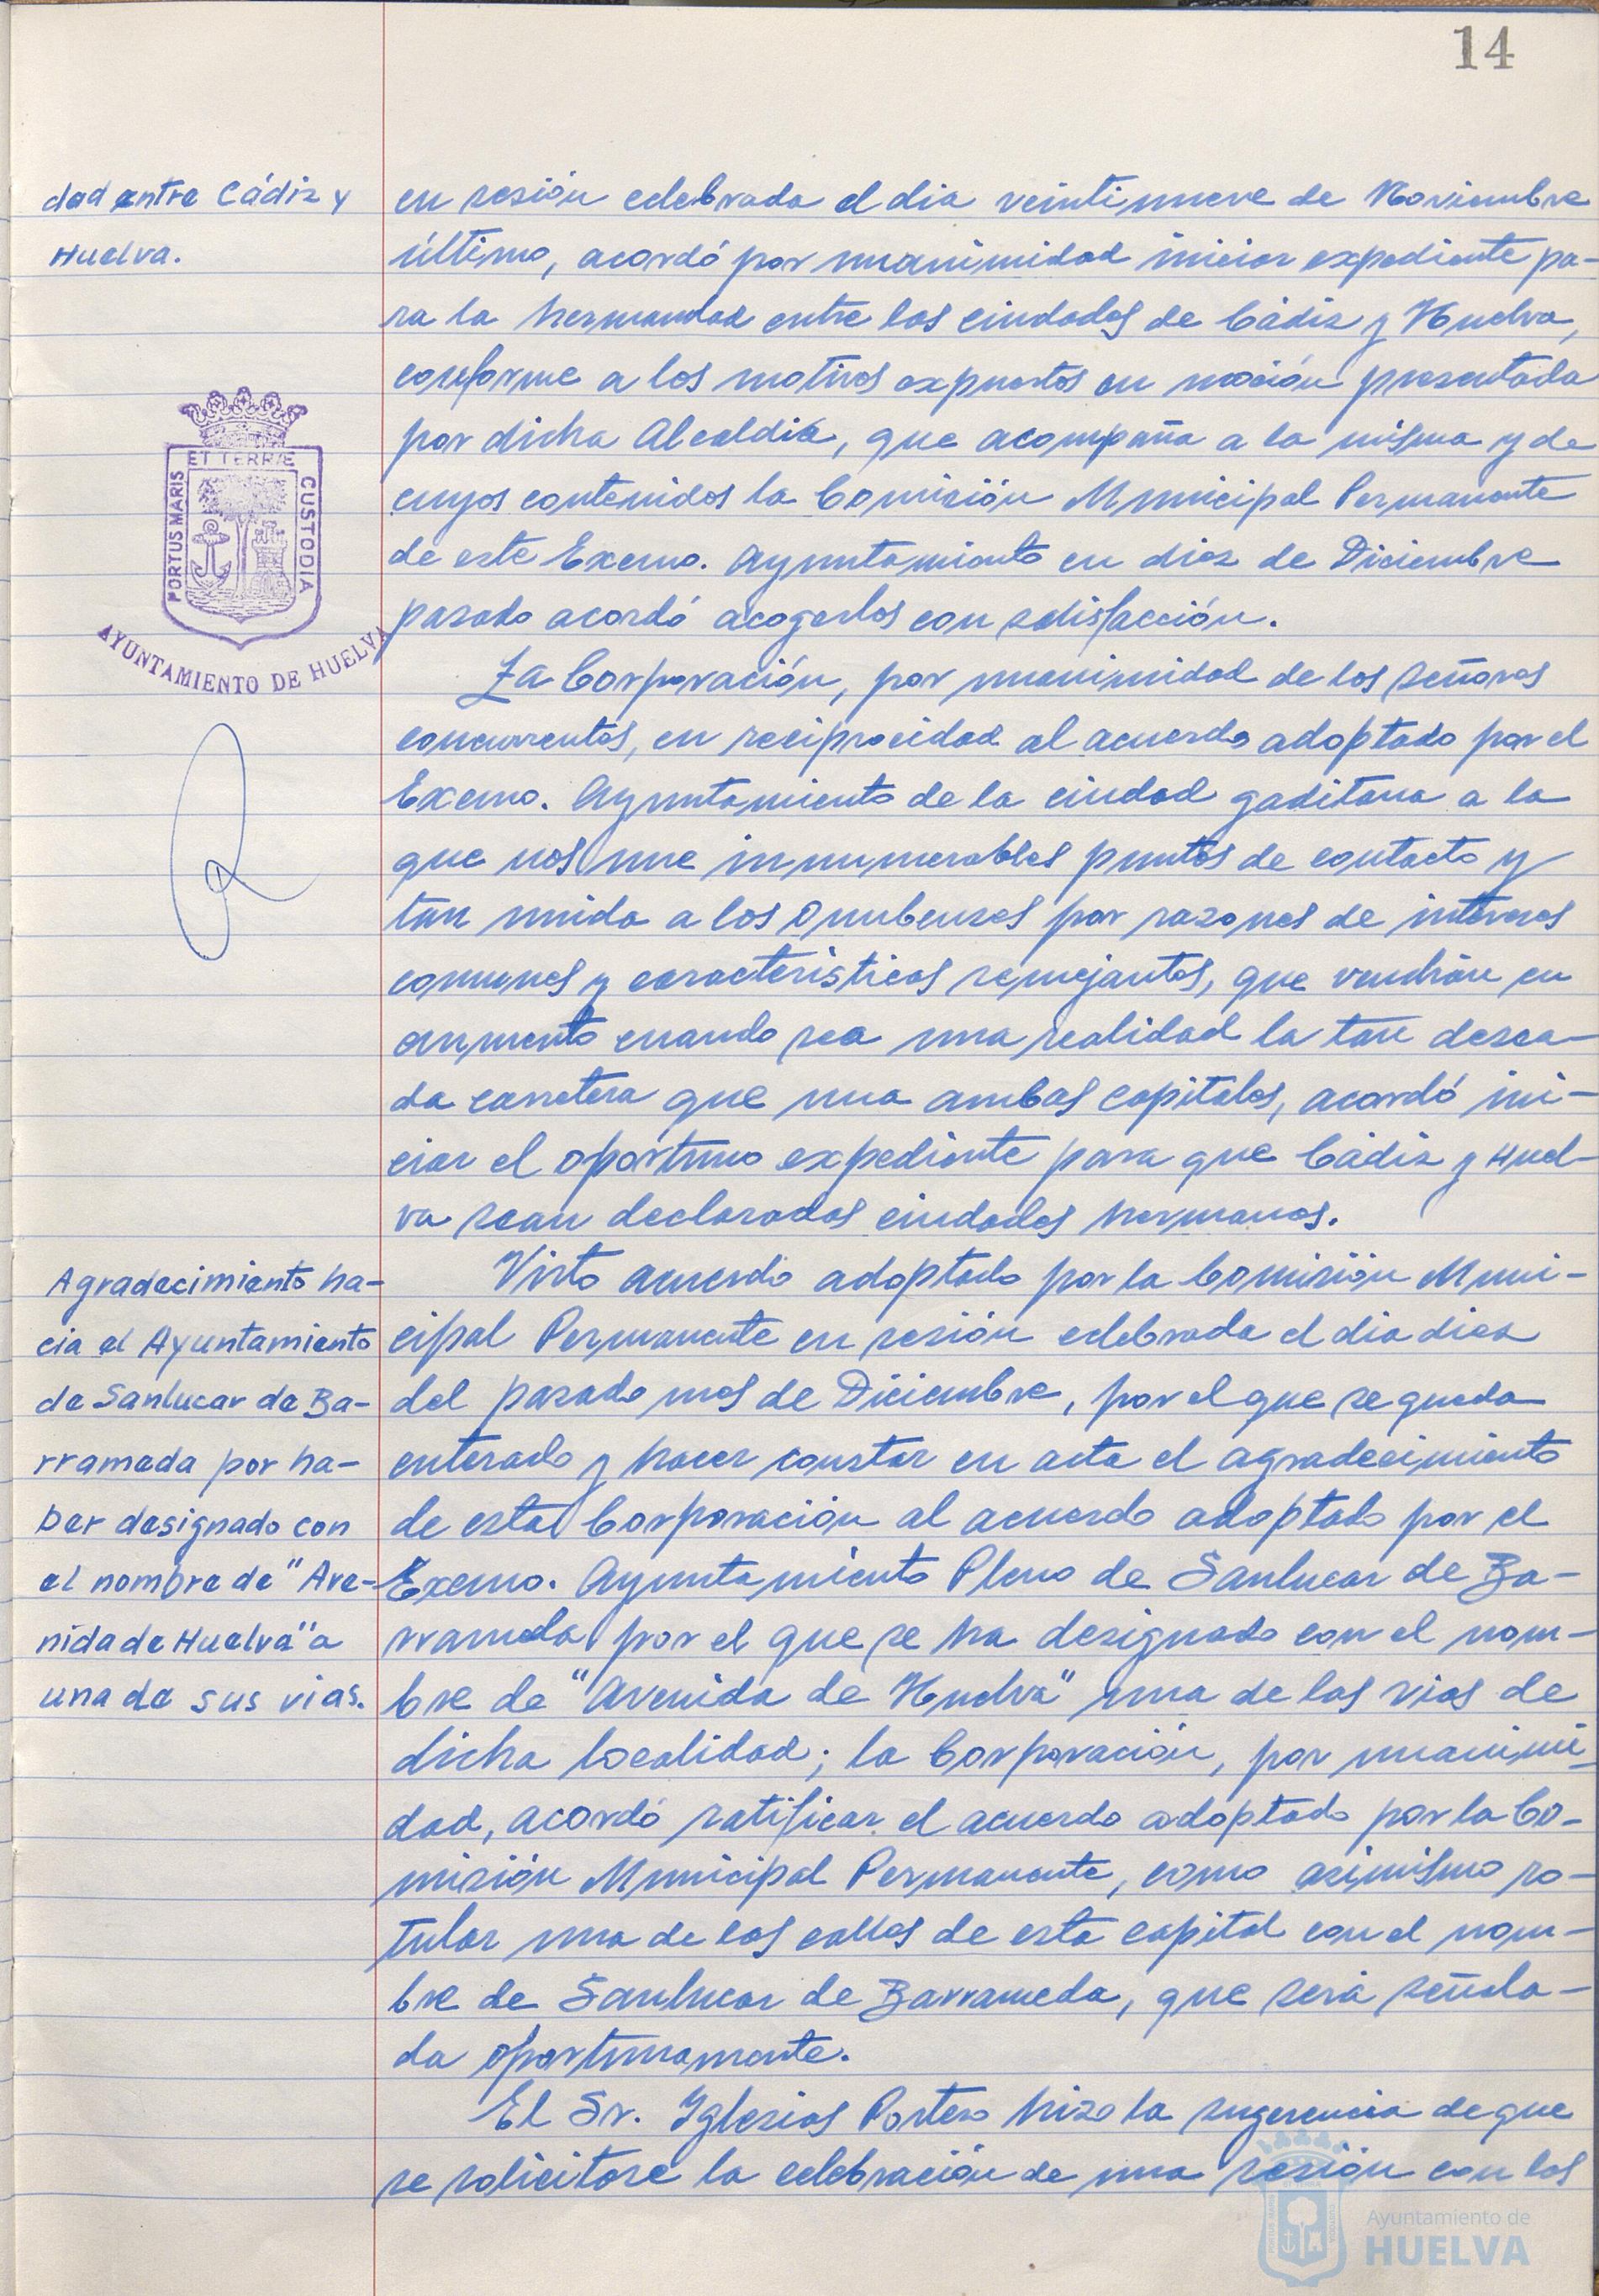 14
dad entre Cádiz y
Huelva.
en sesión celebrada el dia veintinueve de Noviembre
último, acordó por unanimidad iniciar expediente pa-
ra la hermandad entre las ciudades de Cádiz y Huelva,
conforme a los motivos expuestos en moción presentada
por dicha Alcaldia, que acompaña a la misma y de
cuyos contenidos la Comisión Municipal Permanente
de este Excmo. Ayuntamiento en diez de Diciembre
pasado acordó acogerlos con satisfacción.
La Corporación, por unanimidad de los señores
concurrentes, en reciprocidad al acuerdo adoptado por el
Excmo. Ayuntamiento de la ciudad gaditana a la
que nos une innumerables puntos de contacto y
tan unida a los Onubenses por razones de intereses
comunes y caracteristicas semejantes, que vendrán en
aumento cuando sea una realidad la tan desea-
da carretera que una ambas capitales, acordó ini-
ciar el oportuno expediente para que Cádiz y Huel-
va sean declaradas ciudades hermanas.
PORTUS MARIS
ET TERRÆ
CUSTODIA
AYUNTAMIENTO DE HUELVA
Agradecimiento ha-
cia el Ayuntamiento
de Sanlucar de Ba-
rrameda por ha-
ber designado con
el nombre de "Ave-
nida de Huelva" a
una de sus vias.
Visto acuerdo adoptado por la Comisión Muni-
cipal Permanente en sesión celebrada el dia diez
del pasado mes de Diciembre, por el que se queda
enterado y hacer constar en acta el agradecimiento
de esta Corporación al acuerdo adoptado por el
Excmo. Ayuntamiento Pleno de Sanlucar de Ba-
rrameda por el que se ha designado con el nom-
bre de "Avenida de Huelva" una de las vias de
dicha localidad; la Corporación, por unanimi-
dad, acordó ratificar el acuerdo adoptado por la Co-
misión Municipal Permanente, como asimismo ro-
tular una de las calles de esta capital con el nom-
bre de Sanlucar de Barrameda, que será señala-
da oportunamente.
El Sr. Iglesias Portero hizo la sugerencia de que
se solicitase la celebración de una sesión con los
Ayuntamiento de
HUELVA